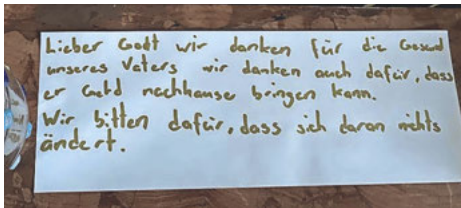 Lieber Gott wir danken für die Gesund
unseres Vaters wir danken auch dafür, dass
er Geld nachhause bringen kann.
Wir bitten dafür, dass sich daran nichts
ändert.